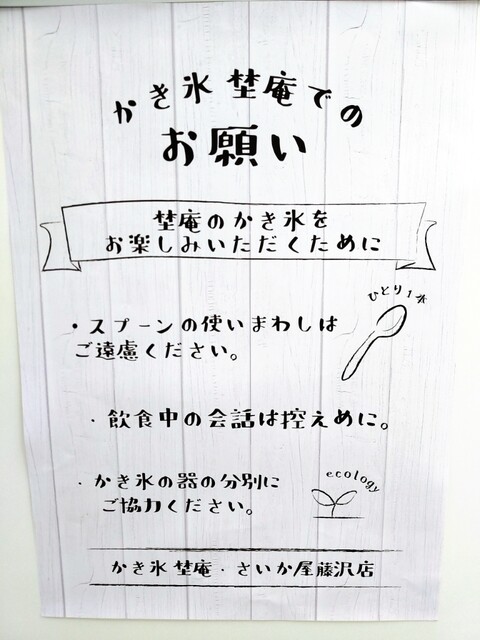 かき氷 埜庵での
お願い
埜庵のかき氷を
お楽しみいただくために
ひとり1本
・スプーンの使いまわしは
ご遠慮ください。
・飲食中の会話は控えめに。
・かき氷の器の分別に
ご協力ください。
ecology
かき氷 埜庵・さいか屋藤沢店